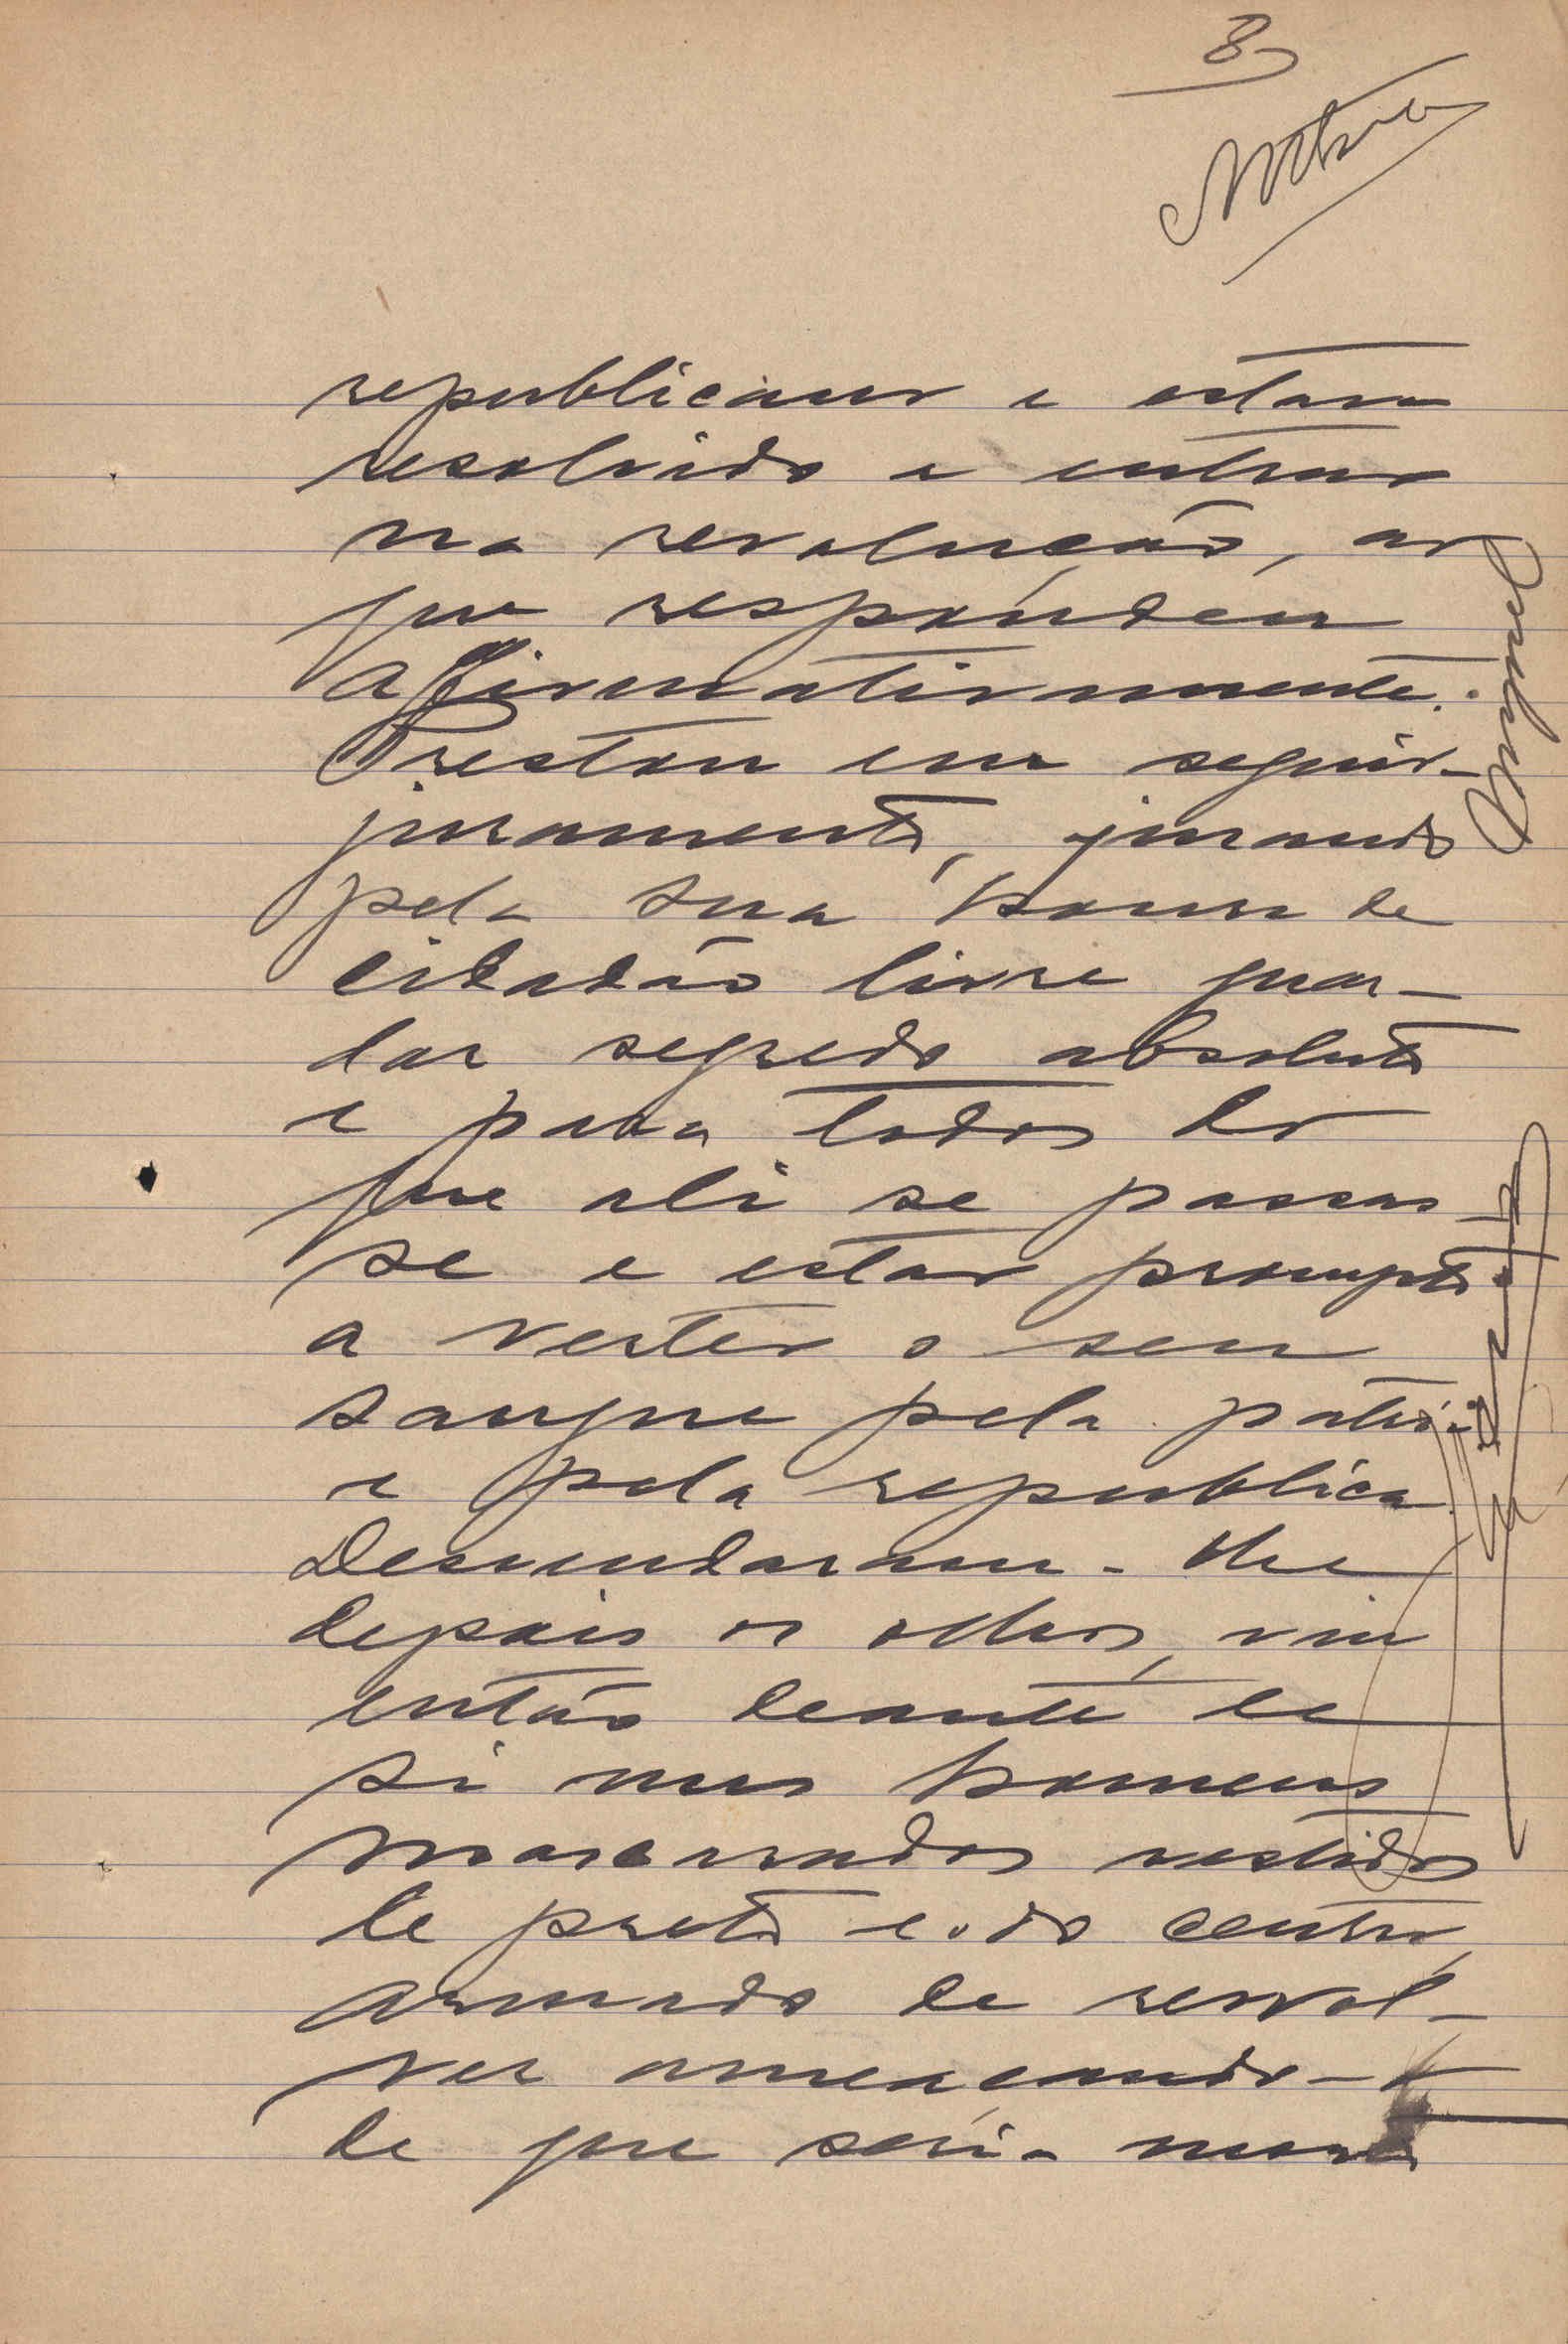 8
republicano e estava
resolvido a entrar
na revolução, ao
que respondeu
affirmativamente.
Prestou em seguida
juramento, jurando
pela sua honra de
cidadão livre guar-
dar segredo absoluto
e para todos do
que ali se passas
se e estar prompto
a verter o seu
sangue pela patria
e pela republica.
Desvendaram-lhe
depois os olhos, viu
então deante de
si uns homens
mascarados vestidos
de preto e o do centro,
armado de revol-
ver ameaçando-o
de que seria morto